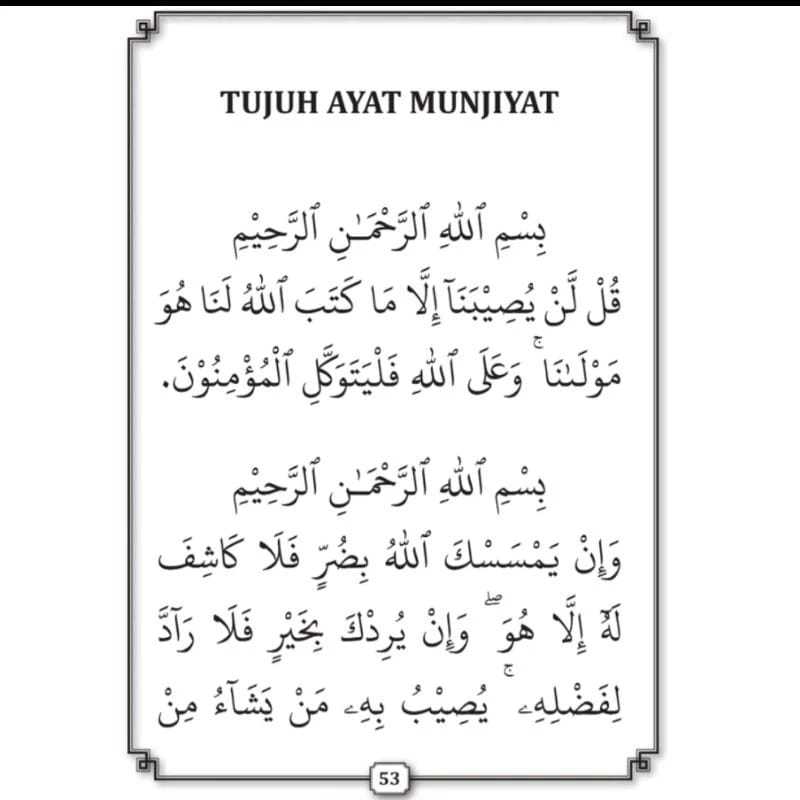 TUJUH AYAT MUNJIYAT
بِسْمِ ٱللهِ ٱلرَّحْمَـٰنِ ٱلرَّحِيْمِ
قُلْ لَّنْ يُصِيْبَنَآ إِلَّا مَا كَتَبَ ٱللهُ لَنَا هُوَ
مَوْلَىٰنَا ۚ وَعَلَى ٱللهِ فَلْيَتَوَكَّلِ ٱلْمُؤْمِنُوْنَ.
بِسْمِ ٱللهِ ٱلرَّحْمَـٰنِ ٱلرَّحِيْمِ
وَإِنْ يَمْسَسْكَ ٱللهُ بِضُرٍّ فَلَا كَاشِفَ
لَهُۥٓ إِلَّا هُوَ ۖ وَإِنْ يُرِدْكَ بِخَيْرٍ فَلَا رَآدَّ
لِفَضْلِهِۦ ۚ يُصِيْبُ بِهِۦ مَنْ يَشَآءُ مِنْ
53